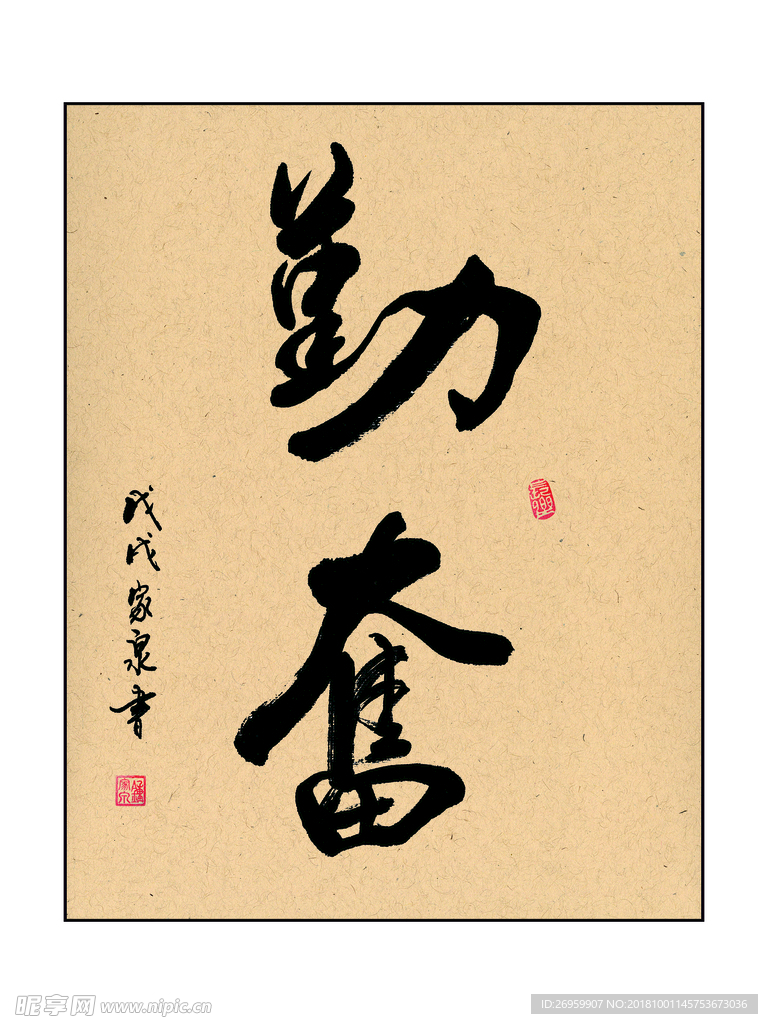 勤奮
戊戌家泉書
昵享网 www.nipic.cn
ID:26959907 NO:20181001145753673036